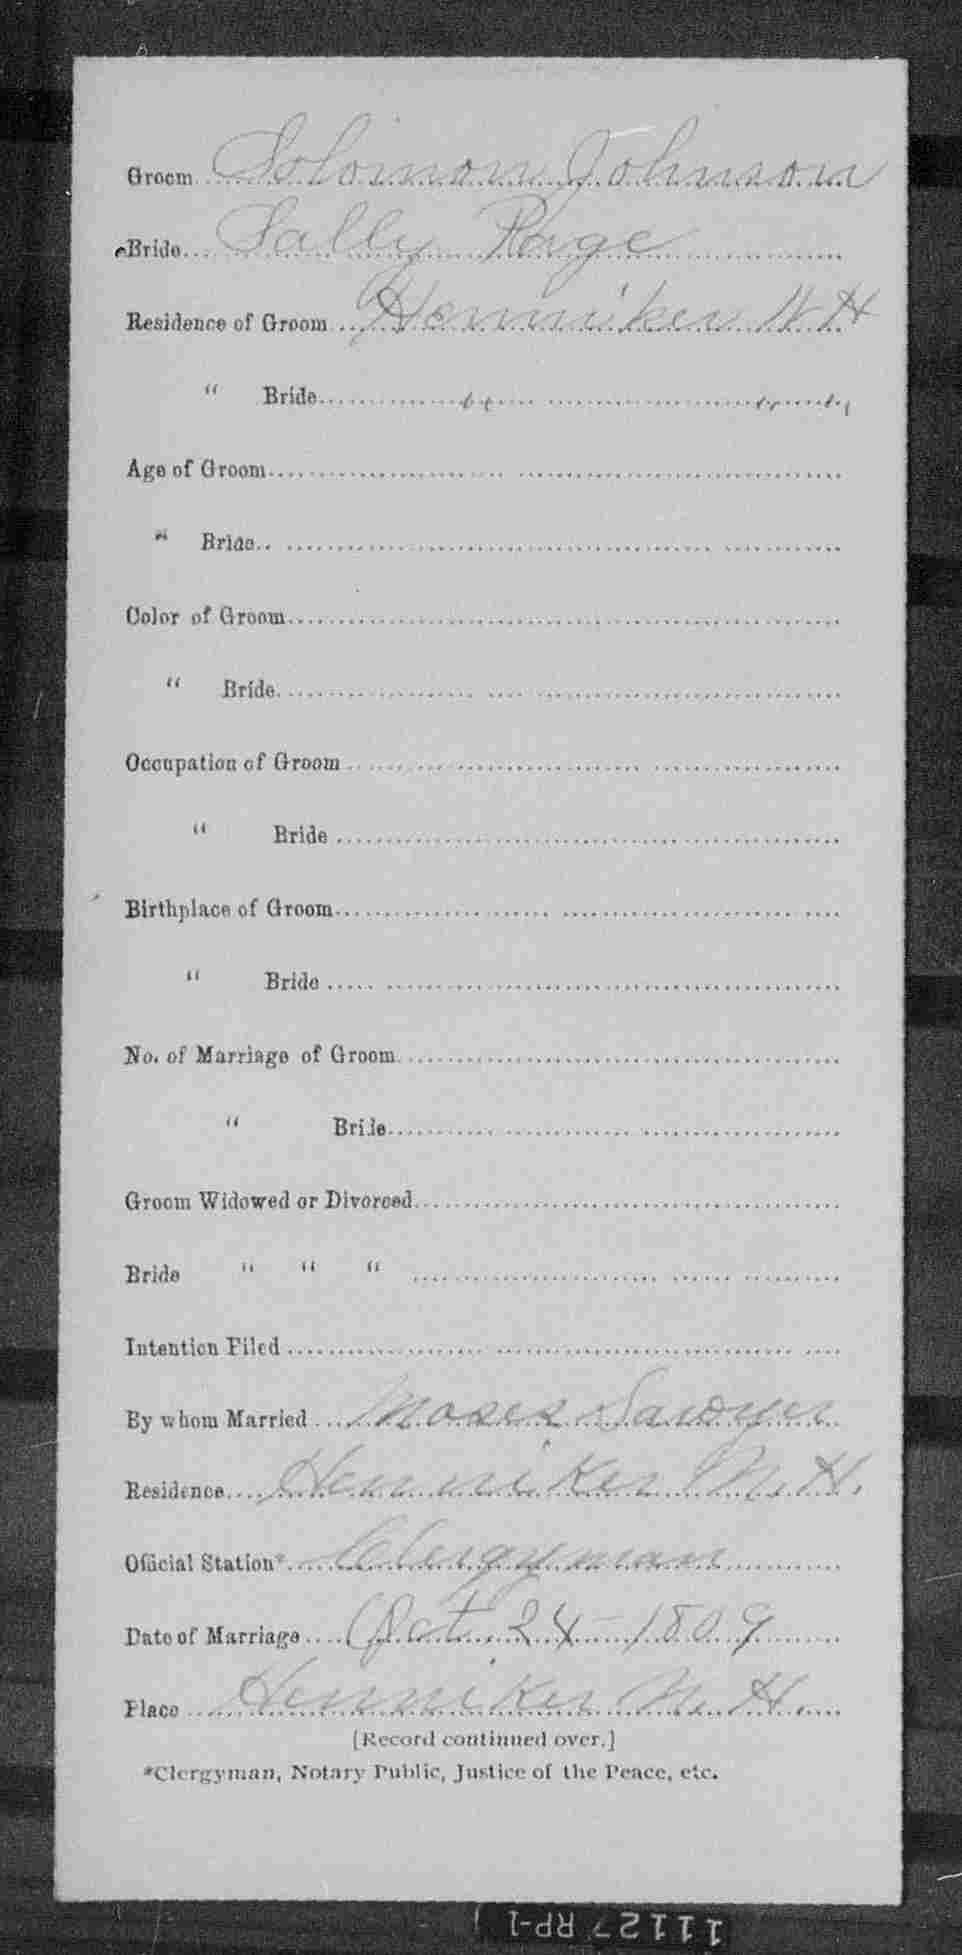 Groom Solomon Johnson
Bride Sally Page
Residence of Groom Henniker N H
" Bride " "
Age of Groom
" Bride
Color of Groom
" Bride
Occupation of Groom
" Bride
Birthplace of Groom
" Bride
No. of Marriage of Groom
" Bride
Groom Widowed or Divorced
Bride " " "
Intention Filed
By whom Married Moses Sawyer
Residence Henniker N. H.
Official Station* Clergyman
Date of Marriage Oct. 24 - 1809
Place Henniker N. H.
[Record continued over.]
*Clergyman, Notary Public, Justice of the Peace, etc.
11127 RP-1